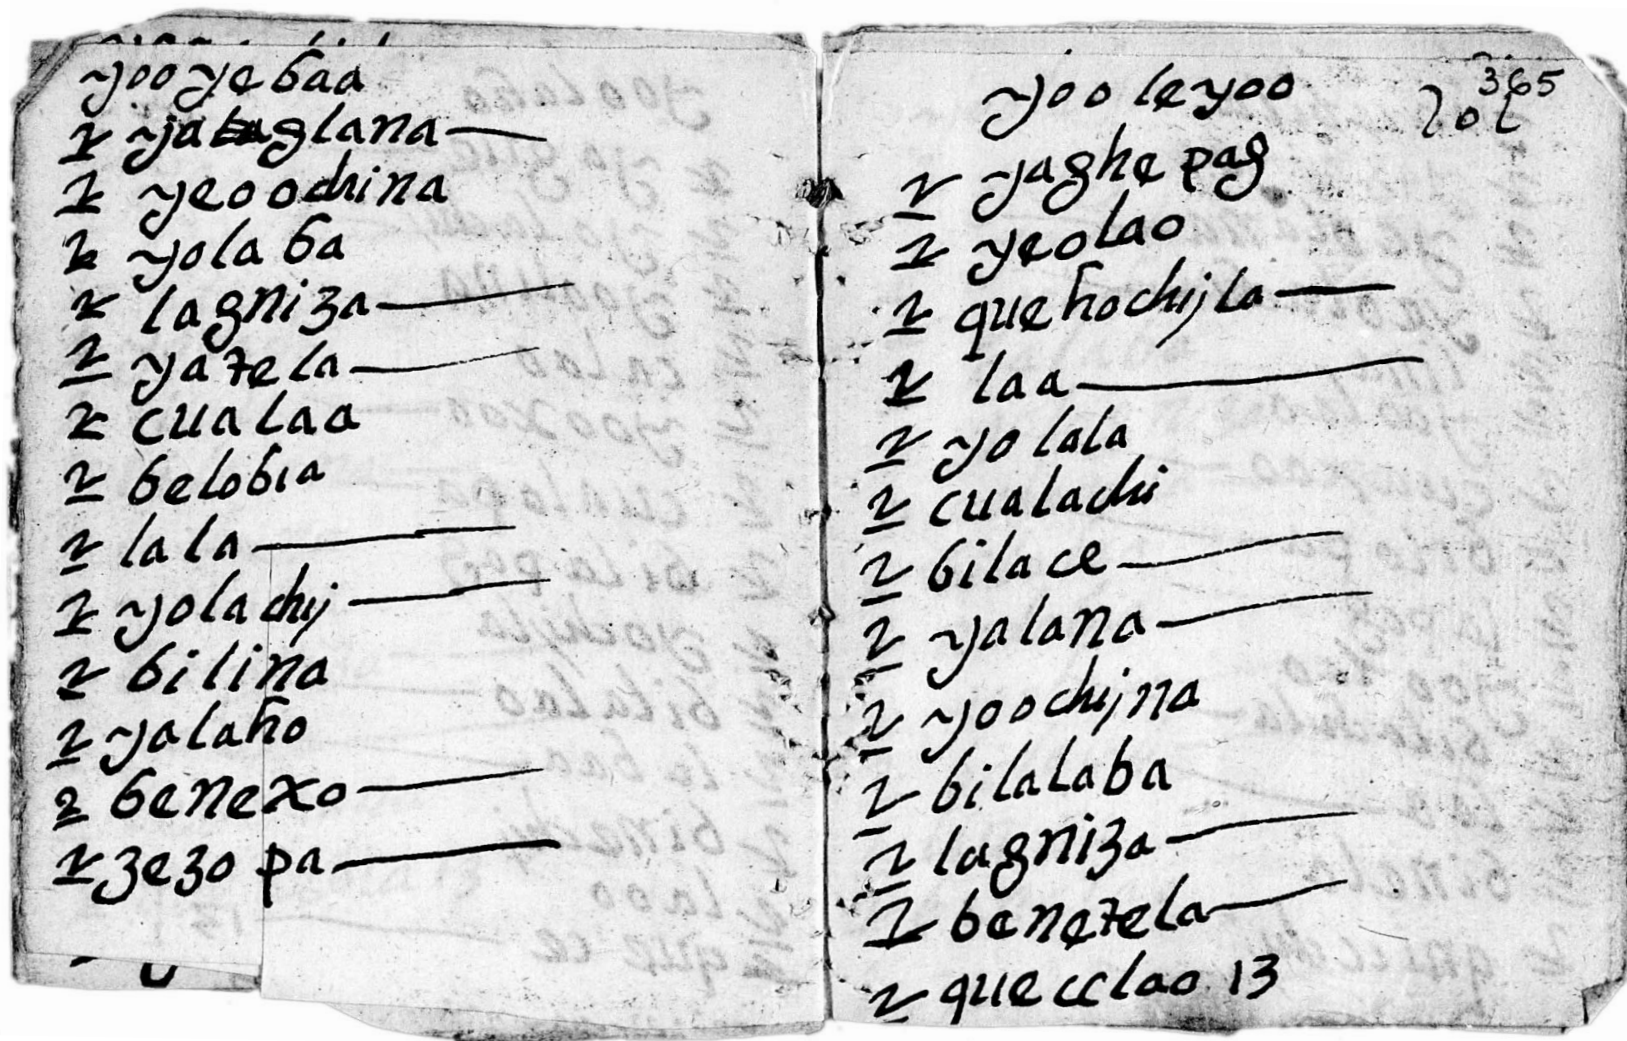 yooyebaa
2 yalaglana
2 yeoochina
2 yolaba
2 lagniza
2 yatela
2 cualaa
2 belobia
2 lala
2 yolachij
2 bilina
2 yalaho
2 benexo
2 zezo pa
365
yoo leyoo
2 yaghe pag
2 yeolao
2 quehochijla
2 laa
2 yo lala
2 cualachi
2 bilace
2 yalana
2 yoochijna
2 bilalaba
2 lagniza
2 benetela
2 quecclao 13